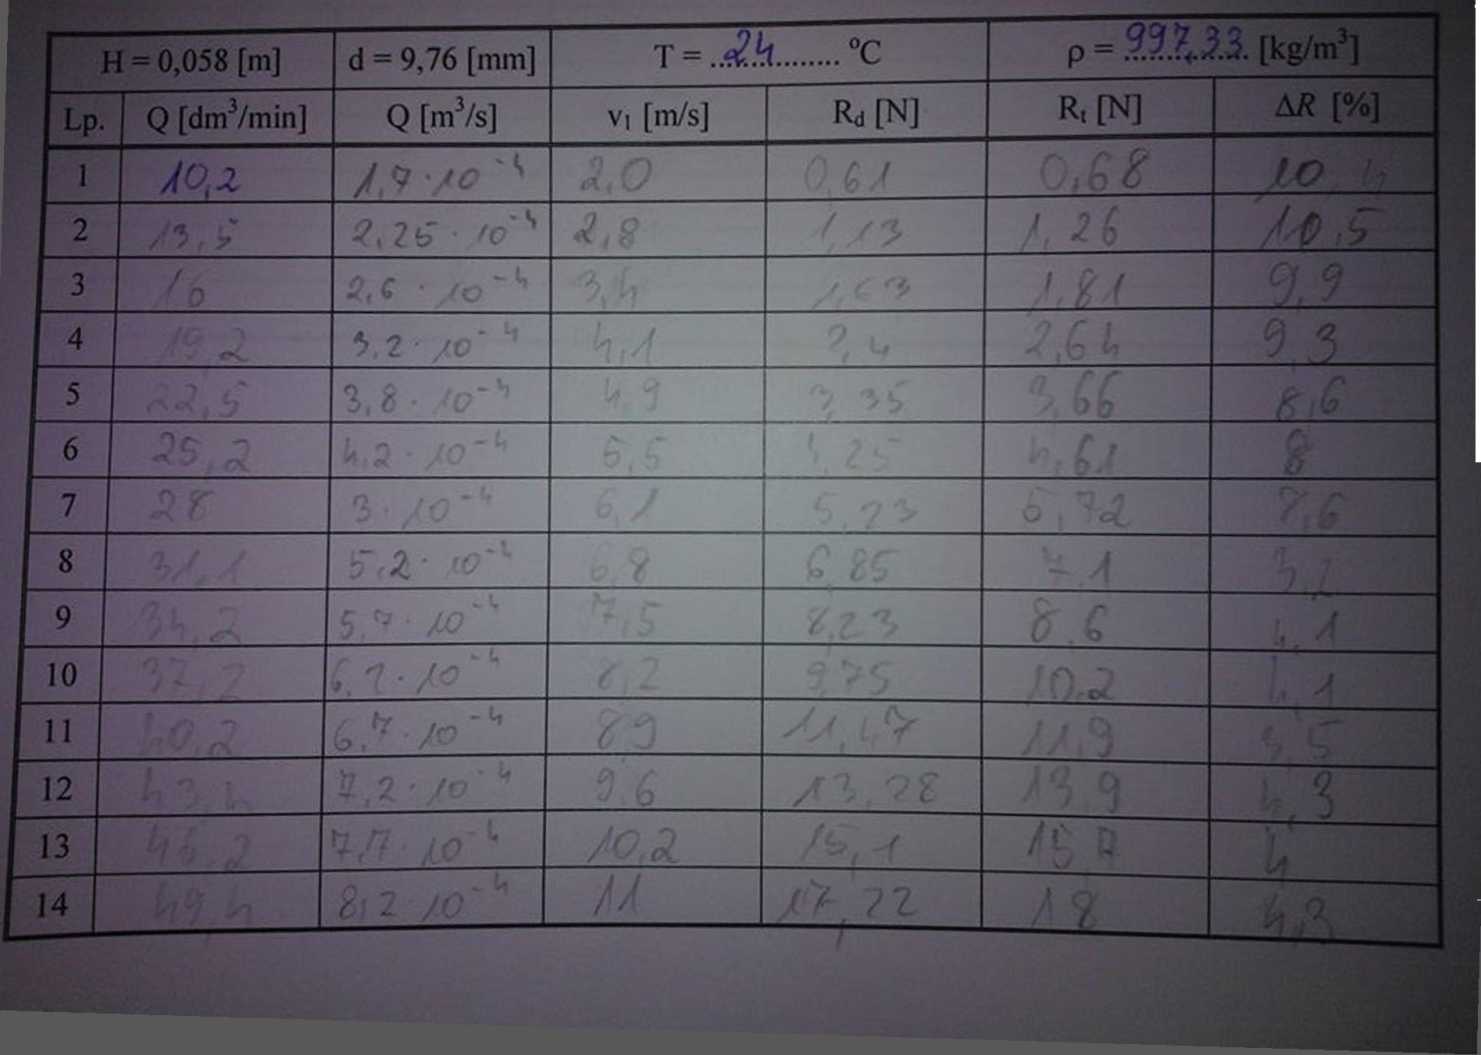 H = 0,058 [m] d = 9,76 [mm] T = ..24.......... °C ρ = 997,33 [kg/m³]
Lp. Q [dm³/min] Q [m³/s] v₁ [m/s] R_d [N] R_t [N] ΔR [%]
1 10,2 1,7·10⁻⁴ 2,0 0,61 0,68 10,4
2 13,5 2,25·10⁻⁴ 2,8 1,13 1,26 10,5
3 16 2,6·10⁻⁴ 3,4 1,63 1,81 9,9
4 19,2 3,2·10⁻⁴ 4,1 2,4 2,64 9,3
5 22,5 3,8·10⁻⁴ 4,9 3,35 3,66 8,6
6 25,2 4,2·10⁻⁴ 5,5 4,25 4,61 8
7 28 3·10⁻⁴ 6,1 5,23 5,72 8,6
8 31,1 5,2·10⁻⁴ 6,8 6,85 7,1
9 34,2 5,7·10⁻⁴ 7,5 8,23 8,6 4,1
10 37,2 6,2·10⁻⁴ 8,2 9,75 10,2 4,1
11 40,2 6,7·10⁻⁴ 8,9 11,47 11,9 3,5
12 43,4 7,2·10⁻⁴ 9,6 13,28 13,9 4,3
13 46,2 7,7·10⁻⁴ 10,2 15,1 15,7 4
14 49,4 8,2·10⁻⁴ 11 17,22 18 4,3